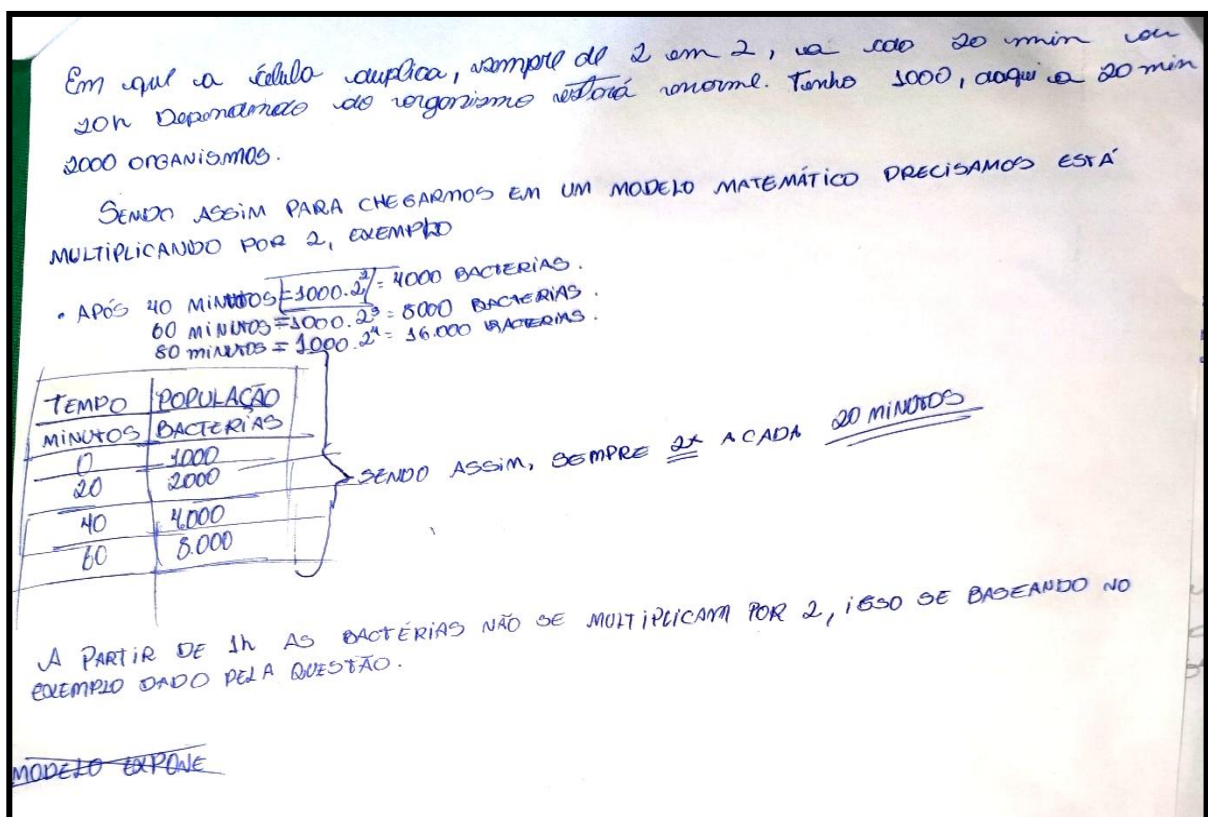 Em que a célula duplica, sempre de 2 em 2, a cda 20 min ou
20h Dependendo do organismo estará enorme. Tenho 1000, daqui a 20 min
2000 ORGANISMOS.
SENDO ASSIM PARA CHEGARMOS EM UM MODELO MATEMÁTICO PRECISAMOS ESTÁ
MULTIPLICANDO POR 2, EXEMPLO
• APÓS 40 MINUTOS = 1000.2² = 4000 BACTERIAS.
60 MINUTOS = 1000.2³ = 8000 BACTERIAS.
80 MINUTOS = 1000.2⁴ = 16.000 BACTERIAS.
TEMPO POPULAÇÃO
MINUTOS BACTERIAS
0 1000
20 2000
40 4.000
60 8.000
SENDO ASSIM, SEMPRE 2x A CADA 20 MINUTOS
A PARTIR DE 1h AS BACTÉRIAS NÃO SE MULTIPLICAM POR 2, ISSO SE BASEANDO NO
EXEMPLO DADO PELA QUESTÃO.
MODELO EXPONE